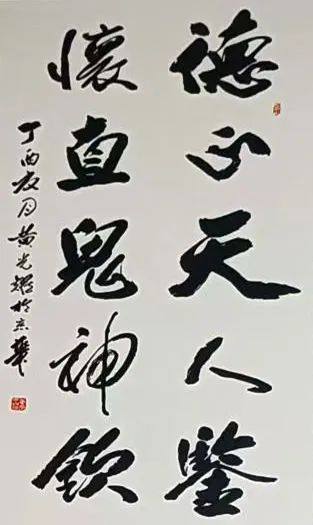 德正天人鑒
懷直鬼神欽
丁酉月黄光於京華